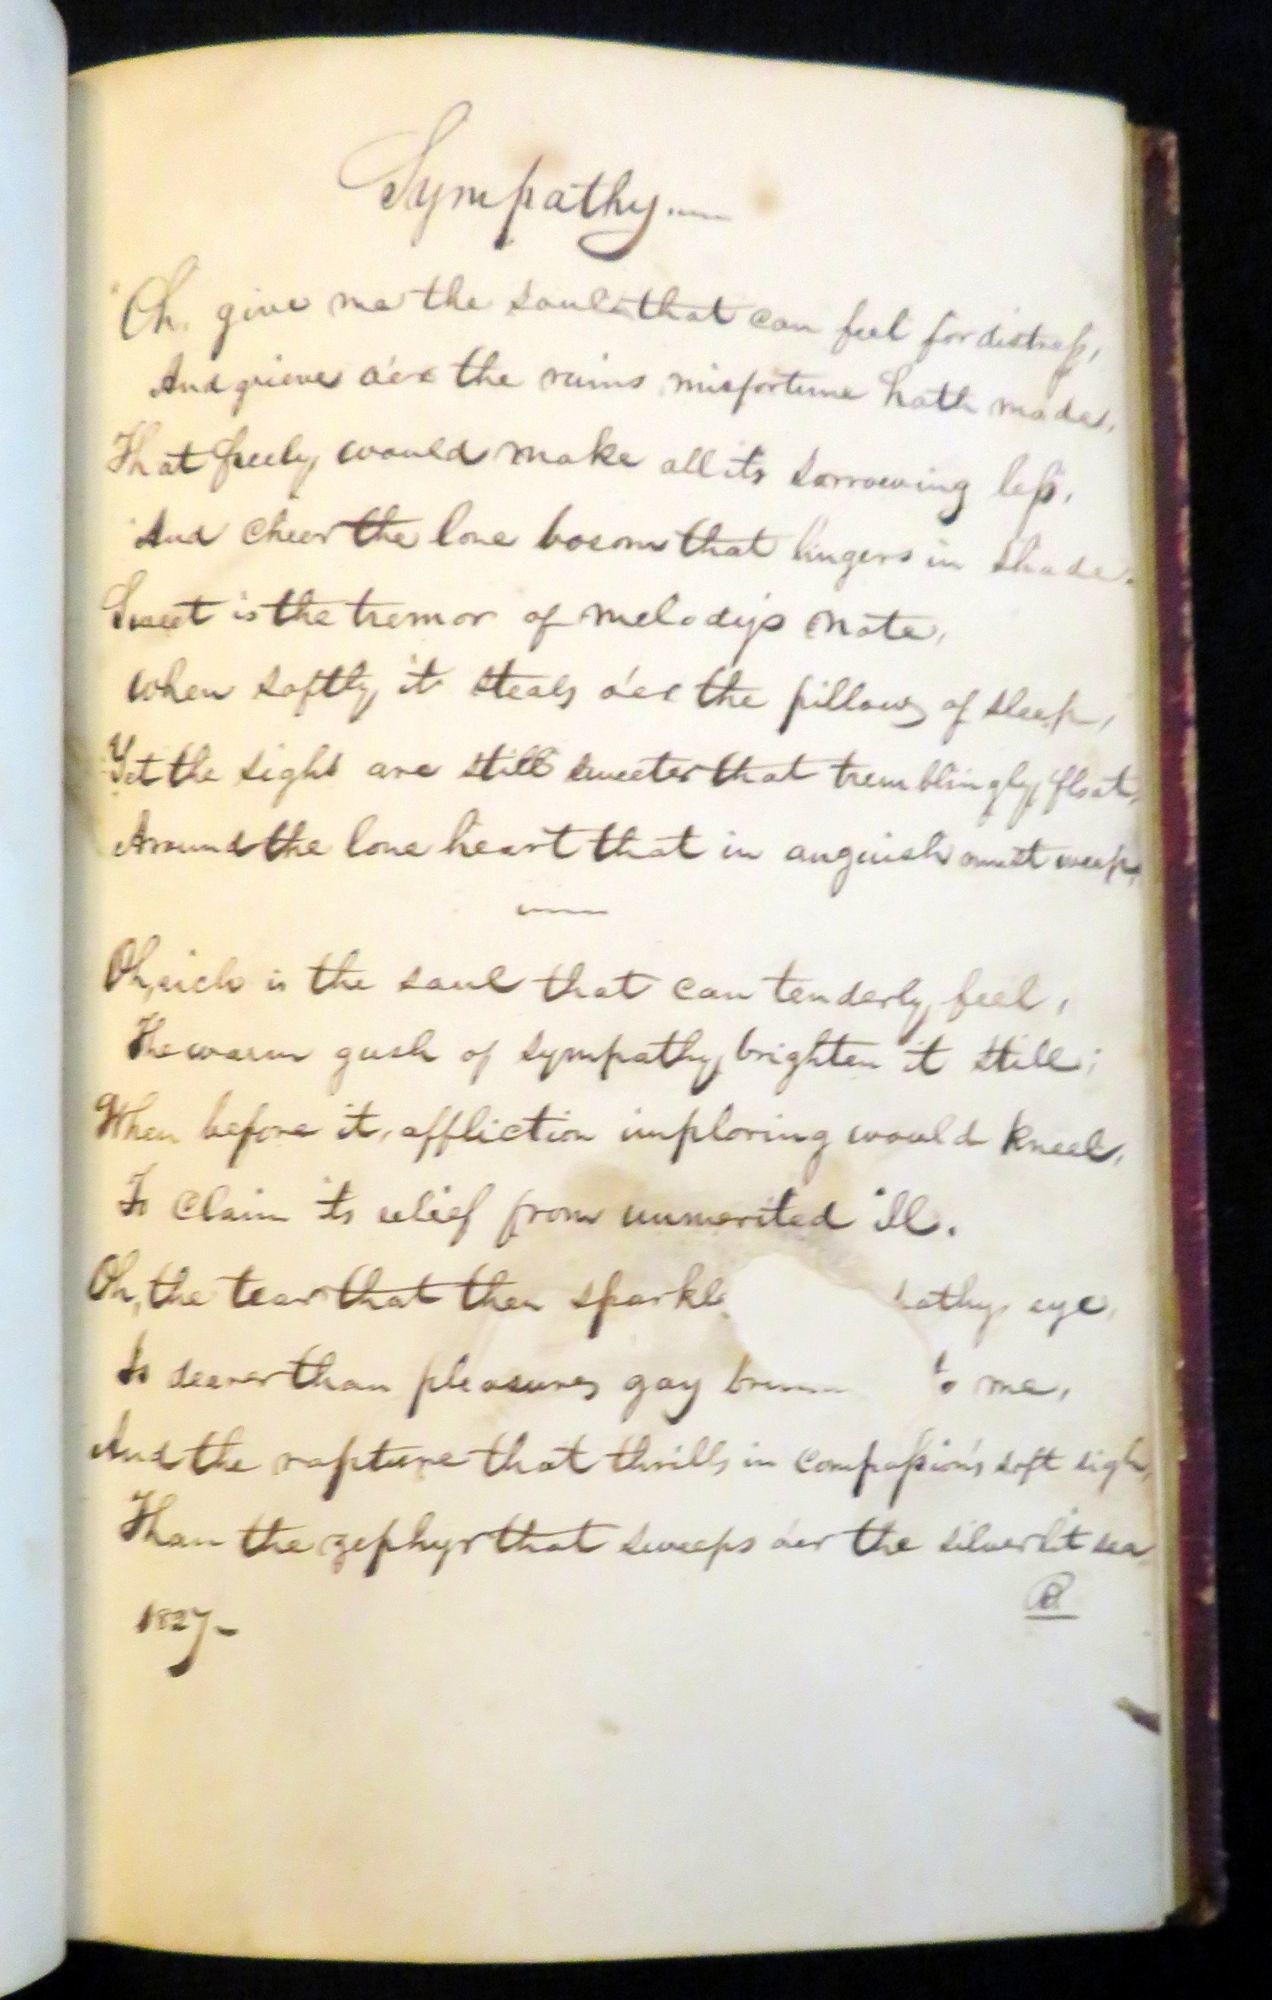 Sympathy.
"Oh, give me the soul that can feel for distreſs,
And grieves o'er the ruins misfortune hath made,
That freely would make all its sorrowing leſs,
And cheer the lone bosom that lingers in shade.
Sweet is the tremor of melody's note,
When softly it steals o'er the pillows of sleep,
Yet the sighs are still sweeter that tremblingly float,
Around the lone heart that in anguish must weep,
Oh, rich is the soul that can tenderly feel,
The warm gush of sympathy brighten it still;
When before it, affliction imploring would kneel,
To claim its relief from unmerited ill.
Oh, the tear that then sparkle athys eye,
Is dearer than pleasures gay to me,
And the rapture that thrills in compaſsion's soft sigh,
Than the zephyr that sweeps o'er the silver lit sea
1827-